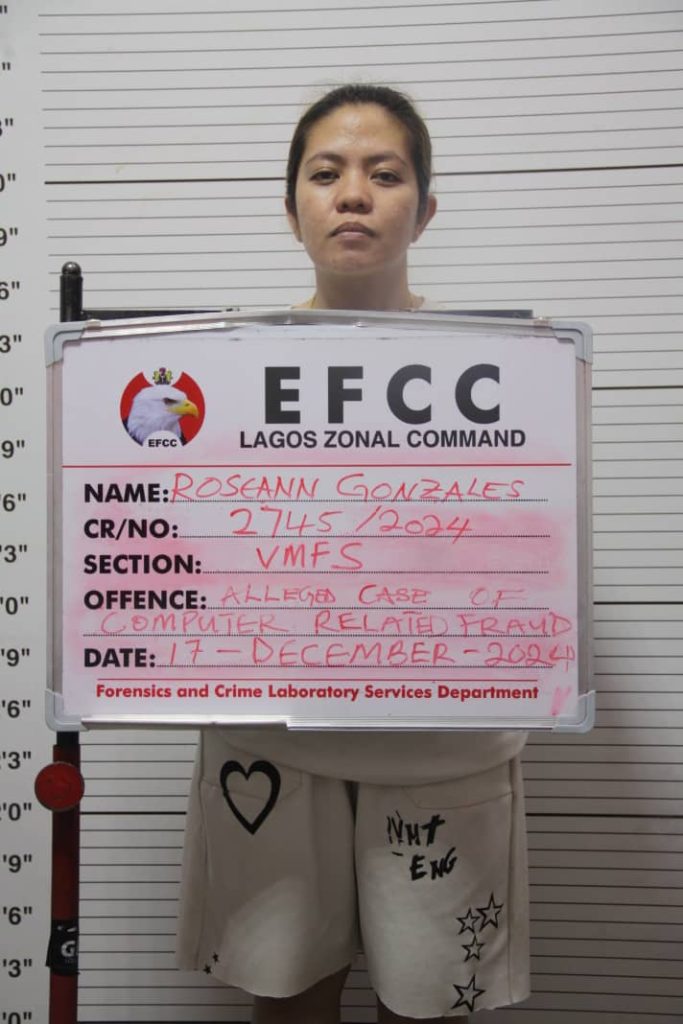 EFCC
EFCC
LAGOS ZONAL COMMAND
NAME: ROSEANN GONZALES
CR/NO: 2745/2024
SECTION: VMFS
OFFENCE: ALLEGED CASE OF
COMPUTER RELATED FRAUD
DATE: 17-DECEMBER-2024
Forensics and Crime Laboratory Services Department
ENG
G
9"
6"
3"
0"
9"
'6"
'3"
'0"
'9"
'6"
'3"
'0"
'9"
'6"
'3"